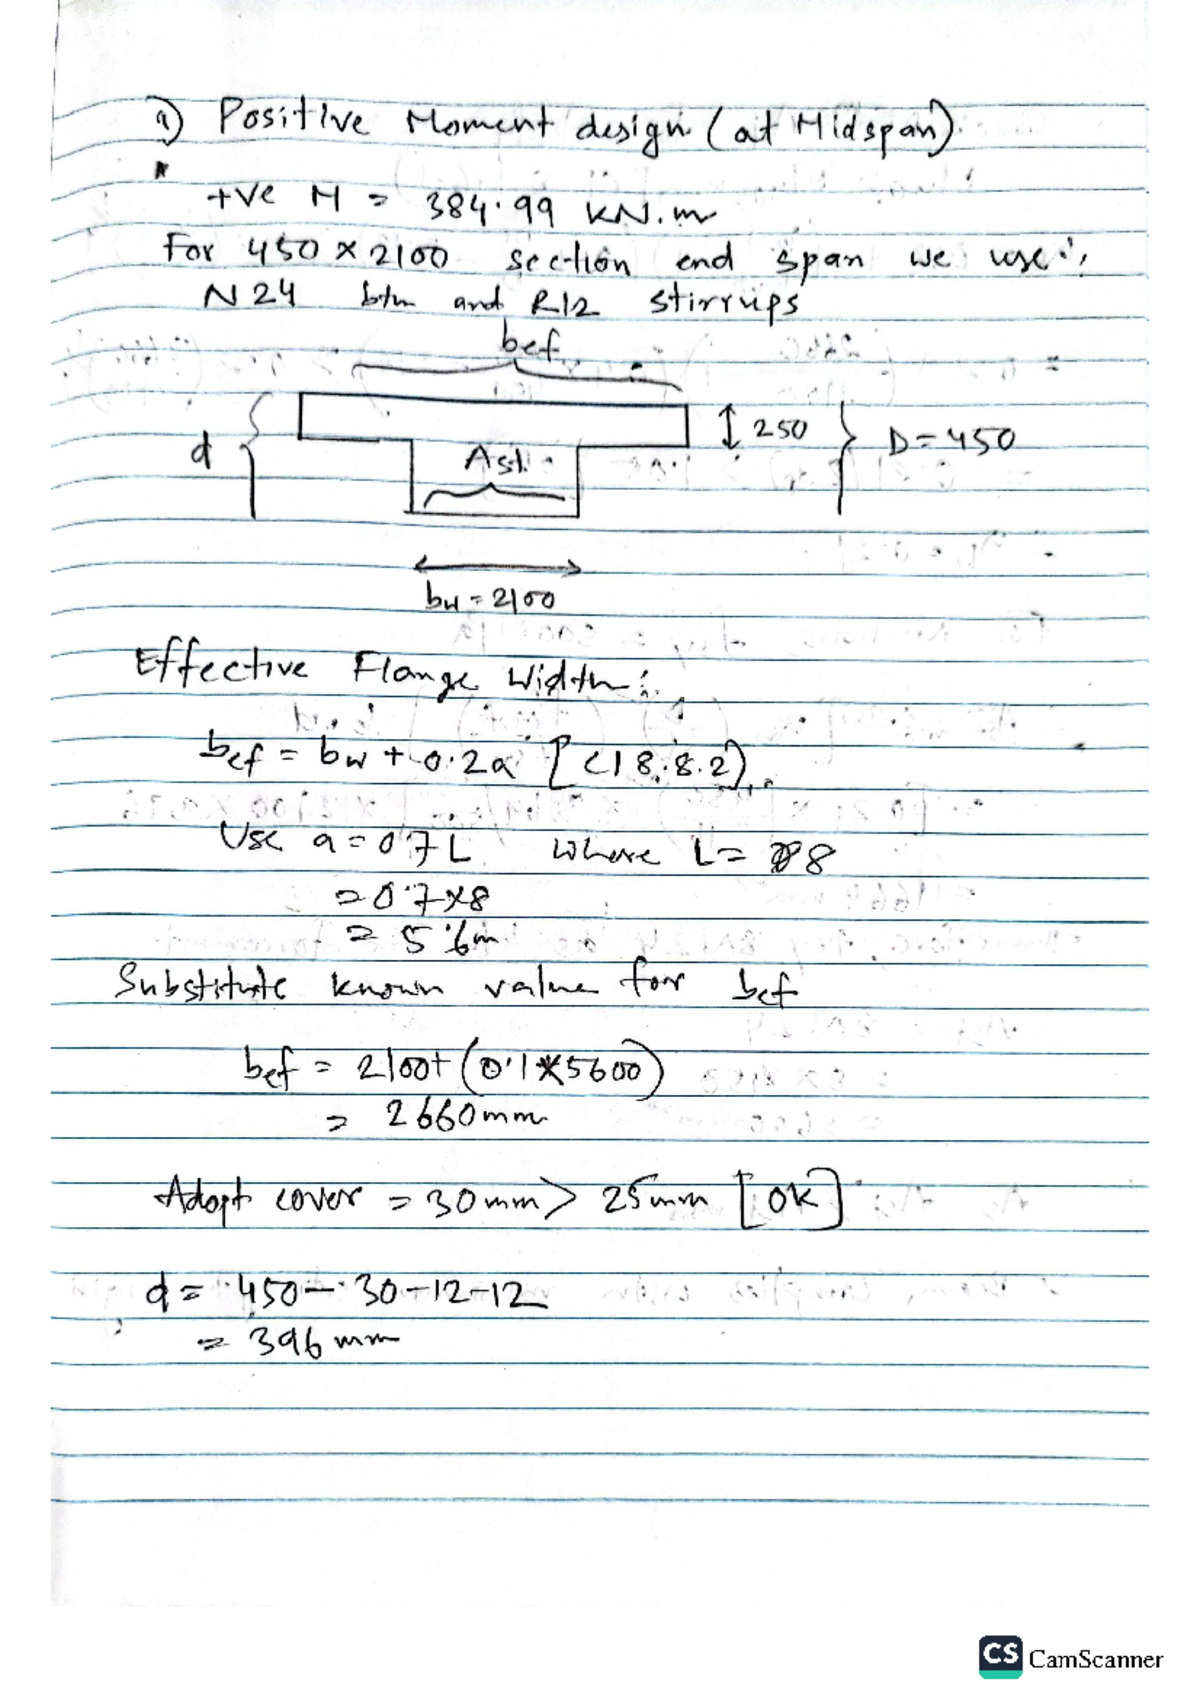 a) Positive Moment design (at Midspan).
+ve M = 384.99 kN.m
For 450 x 2100 section end span we use:
N24 btm and R12 stirrups
bef
d
Ast
250
D=450
bw = 2100
Effective Flange Width:
bef = bw + 0.2a [Cl 8.8.2]
Use a = 0.7L where L = 8
= 0.7x8
= 5.6m
Substitute known value for bef
bef = 2100+ (0.1*5600)
= 2660mm
Adopt cover = 30mm > 25mm [OK]
d = 450 - 30 - 12 - 12
= 396 mm
CS CamScanner